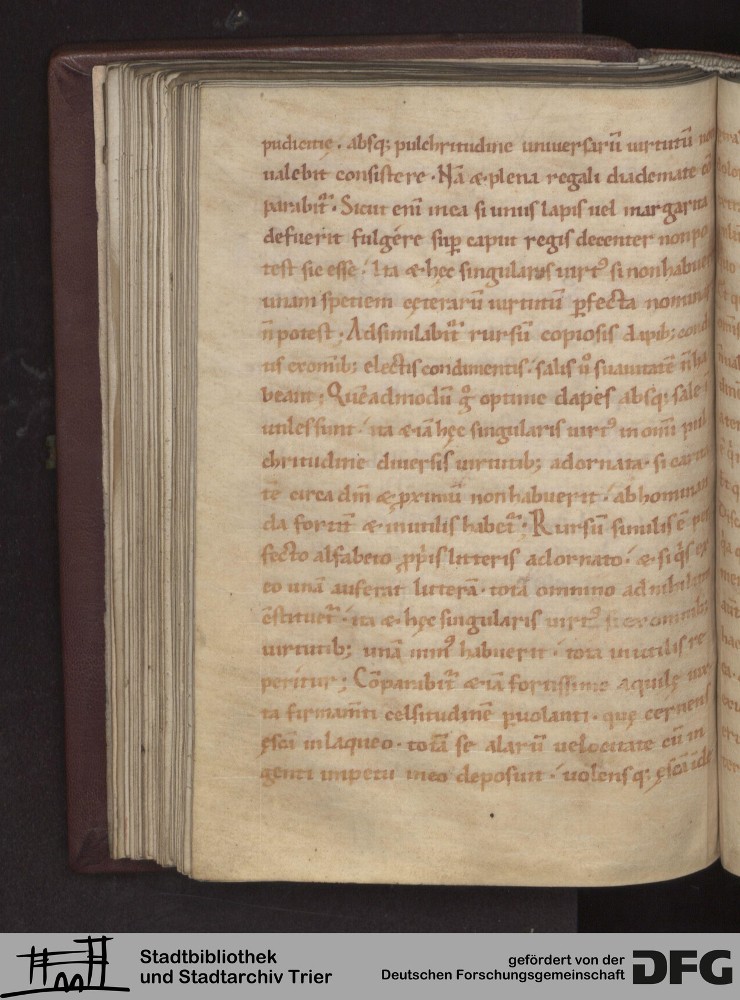 pudicitię . absq; pulchritudine uniuersarū uirtutū
ualebit consistere . Nā & plena regali diademate
parabit᷒ . Sicut eni᷒ in ea si unus lapis uel margarita
defuerit fulgére suꝑ caput regis decenter non po
test sic esse . Ita & hęc singularis uirt᷒ si non habuerit
unam spetiem cęterarū uirtutū ꝑfecta
n̄ potest . Adsimilabit᷒ rursū copiosis dapib;
us ex omib; electis condimentis . salis u᷒o suauitatē n̄ ha
beant ; Quēadmodū g᷒ optime dapes absq; sale
utiles sunt . ita & iā hęc singularis uirt᷒ in omi᷒ pul
chritudine diuersis uirtutib; adornata . si carita
tē circa dm̄ & ꝓximū non habuerit . abhominan
da fortū & inutilis habet᷒ . Rursū similis ē per
fecto alfabeto ꝓpriis litteris adornato . & si q᷒s ex
eo unā auferat litterā . totā omnino ad nihilum
cōstituet᷒ . ita & hęc singularis uirt᷒ si ex omnibus
uirtutib; unā min᷒ habuerit . tota inutilis re
peritur ; Cōparabit᷒ & iā fortissime aquilę
ta firmam̄ti celsitudinē p̄uolanti . quę cernens
ęscā in laqueo . totā se alarū uelocitate cū in
genti impetu in eo deposuit . uolensq; ęscā inde
Stadtbibliothek
und Stadtarchiv Trier
gefördert von der
Deutschen Forschungsgemeinschaft
DFG